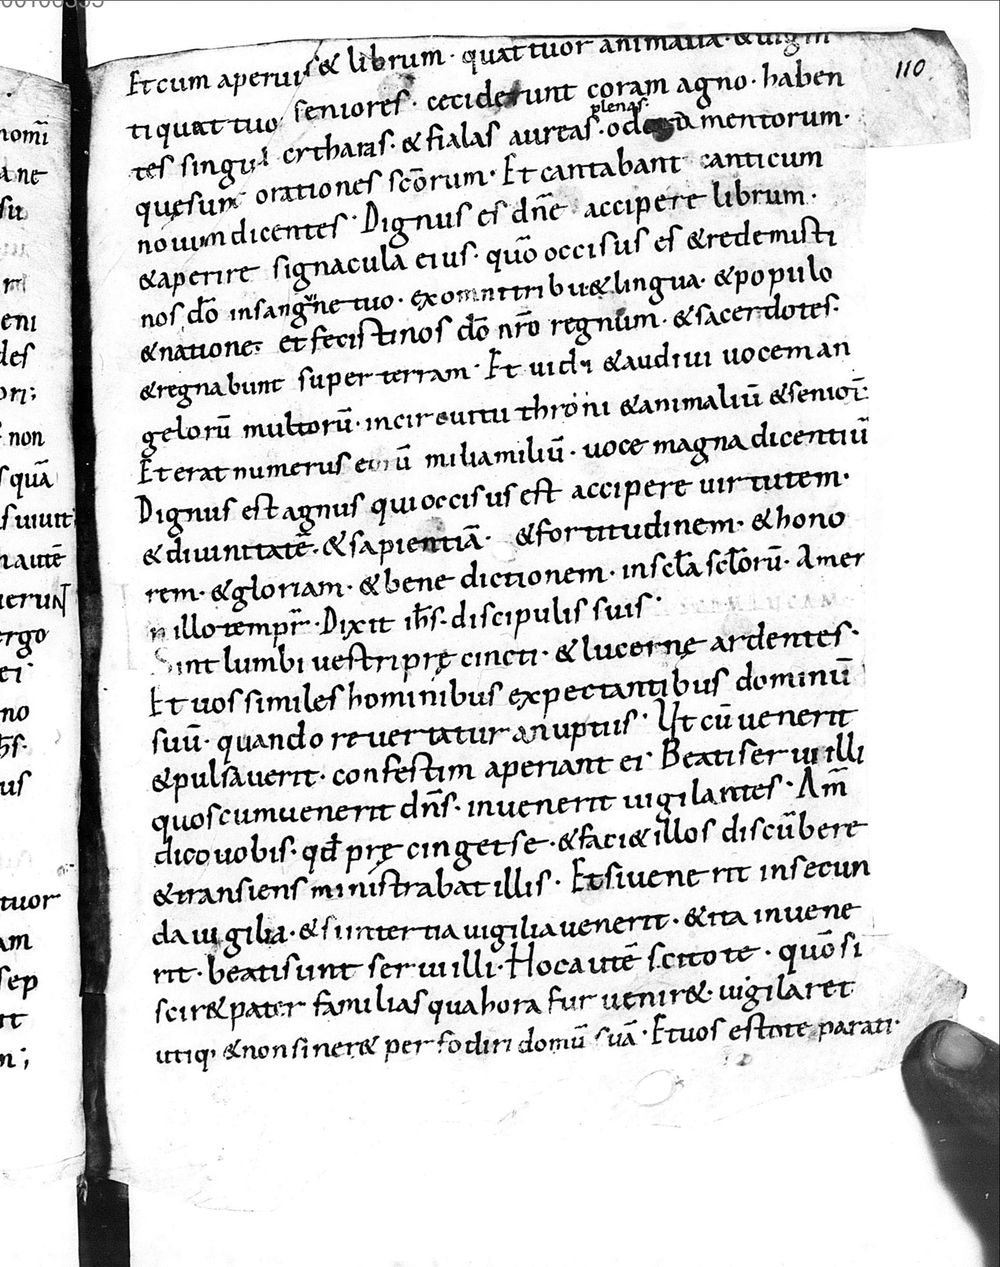 110
Et cum aperuiss& librum · quattuor animalia · & uigin
ti quattuo seniores · ceciderunt coram agno · haben
tes singuli cytharas · & fialas aureas · plenas odoramentorum ·
quę sunt orationes scōrum · Et cantabant canticum
nouum dicentes · Dignus es dn̄e accipere librum ·
& aperire signacula eius · quō occisus es & redemisti
nos dō in sanguine tuo · ex omni tribu & lingua · & populo
& natione · et fecisti nos dō nrō regnum · & sacerdotes ·
& regnabunt super terram · Et uidi & audiui uocem an
gelorū multorū · in circuitu throni & animaliū & senior̄ ·
Et erat numerus eorū milia miliū · uoce magna dicentiū
Dignus est agnus qui occisus est accipere uirtutem ·
& diuinitatē · & sapientiā · & fortitudinem · & hono
rem · & gloriam · & benedictionem · in scl̄a scl̄orū · Amen
n illo tempr̄ · Dixit ih̄s · discipulis suis ·
Sint lumbi uestri pręcincti · & lucernę ardentes ·
Et uos similes hominibus expectantibus dominū
suū · quando reuertatur a nuptiis · Ut cū uenerit
& pulsauerit · confestim aperiant ei · Beati serui illi
quos cum uenerit dn̄s · inuenerit uigilantes · Am̄
dico uobis · qđ pręcinget se · & faci& illos discūbere
& transiens ministrabat illis · Et si uenerit in secun
da uigilia · & si in tertia uigilia uenerit · & ita inuene
rit · beati sunt serui illi · Hoc autē scitote · quō si
scir& pater familias qua hora fur uenir& · uigilaret
utiq; & non siner& perfodiri domū suā · Et uos estote parati ·
nomī
suū
eni
des
ori;
non
s quā
s uiuit
autē
uerunt
ergo
ei
no
h̄s ·
us
tuor
am
sep